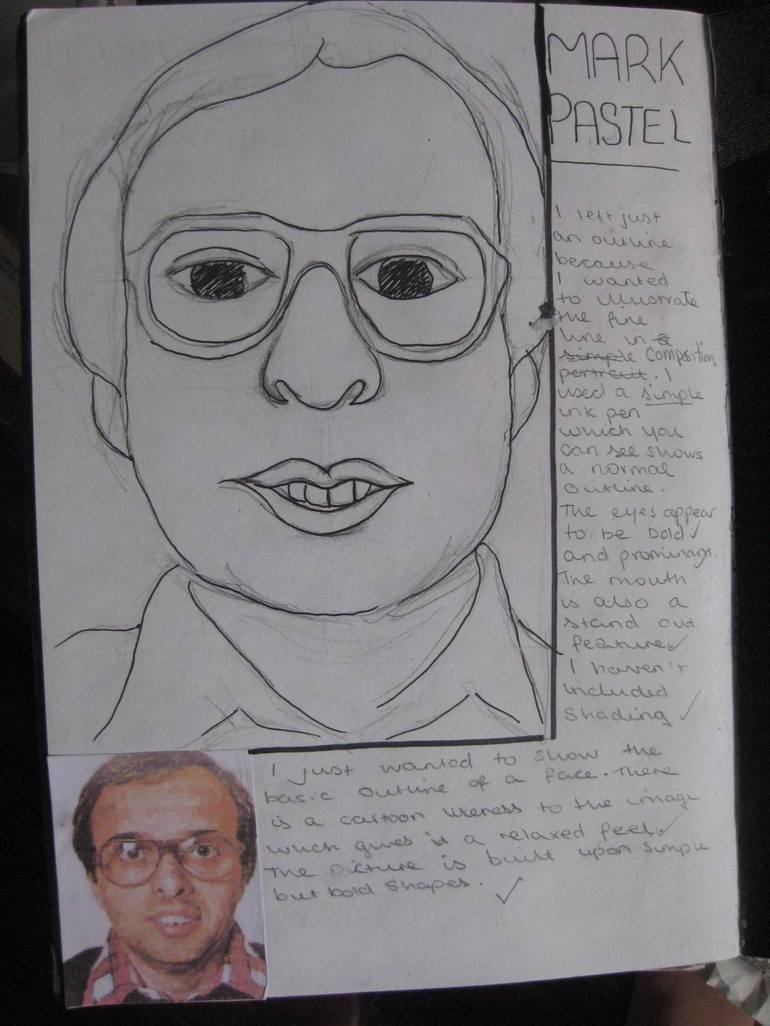 MARK
PASTEL
I left just
an outline
because
I wanted
to illustrate
the fine
line in a
simple composition
portrait. I
used a simple
ink pen
which you
can see shows
a normal
outline.
The eyes appear
to be bold
and prominant.
The mouth
is also a
stand out
feature
I haven't
included
shading
I just wanted to show the
basic outline of a face. There
is a cartoon likeness to the image
which gives it a relaxed feel.
The picture is built upon simple
but bold shapes.